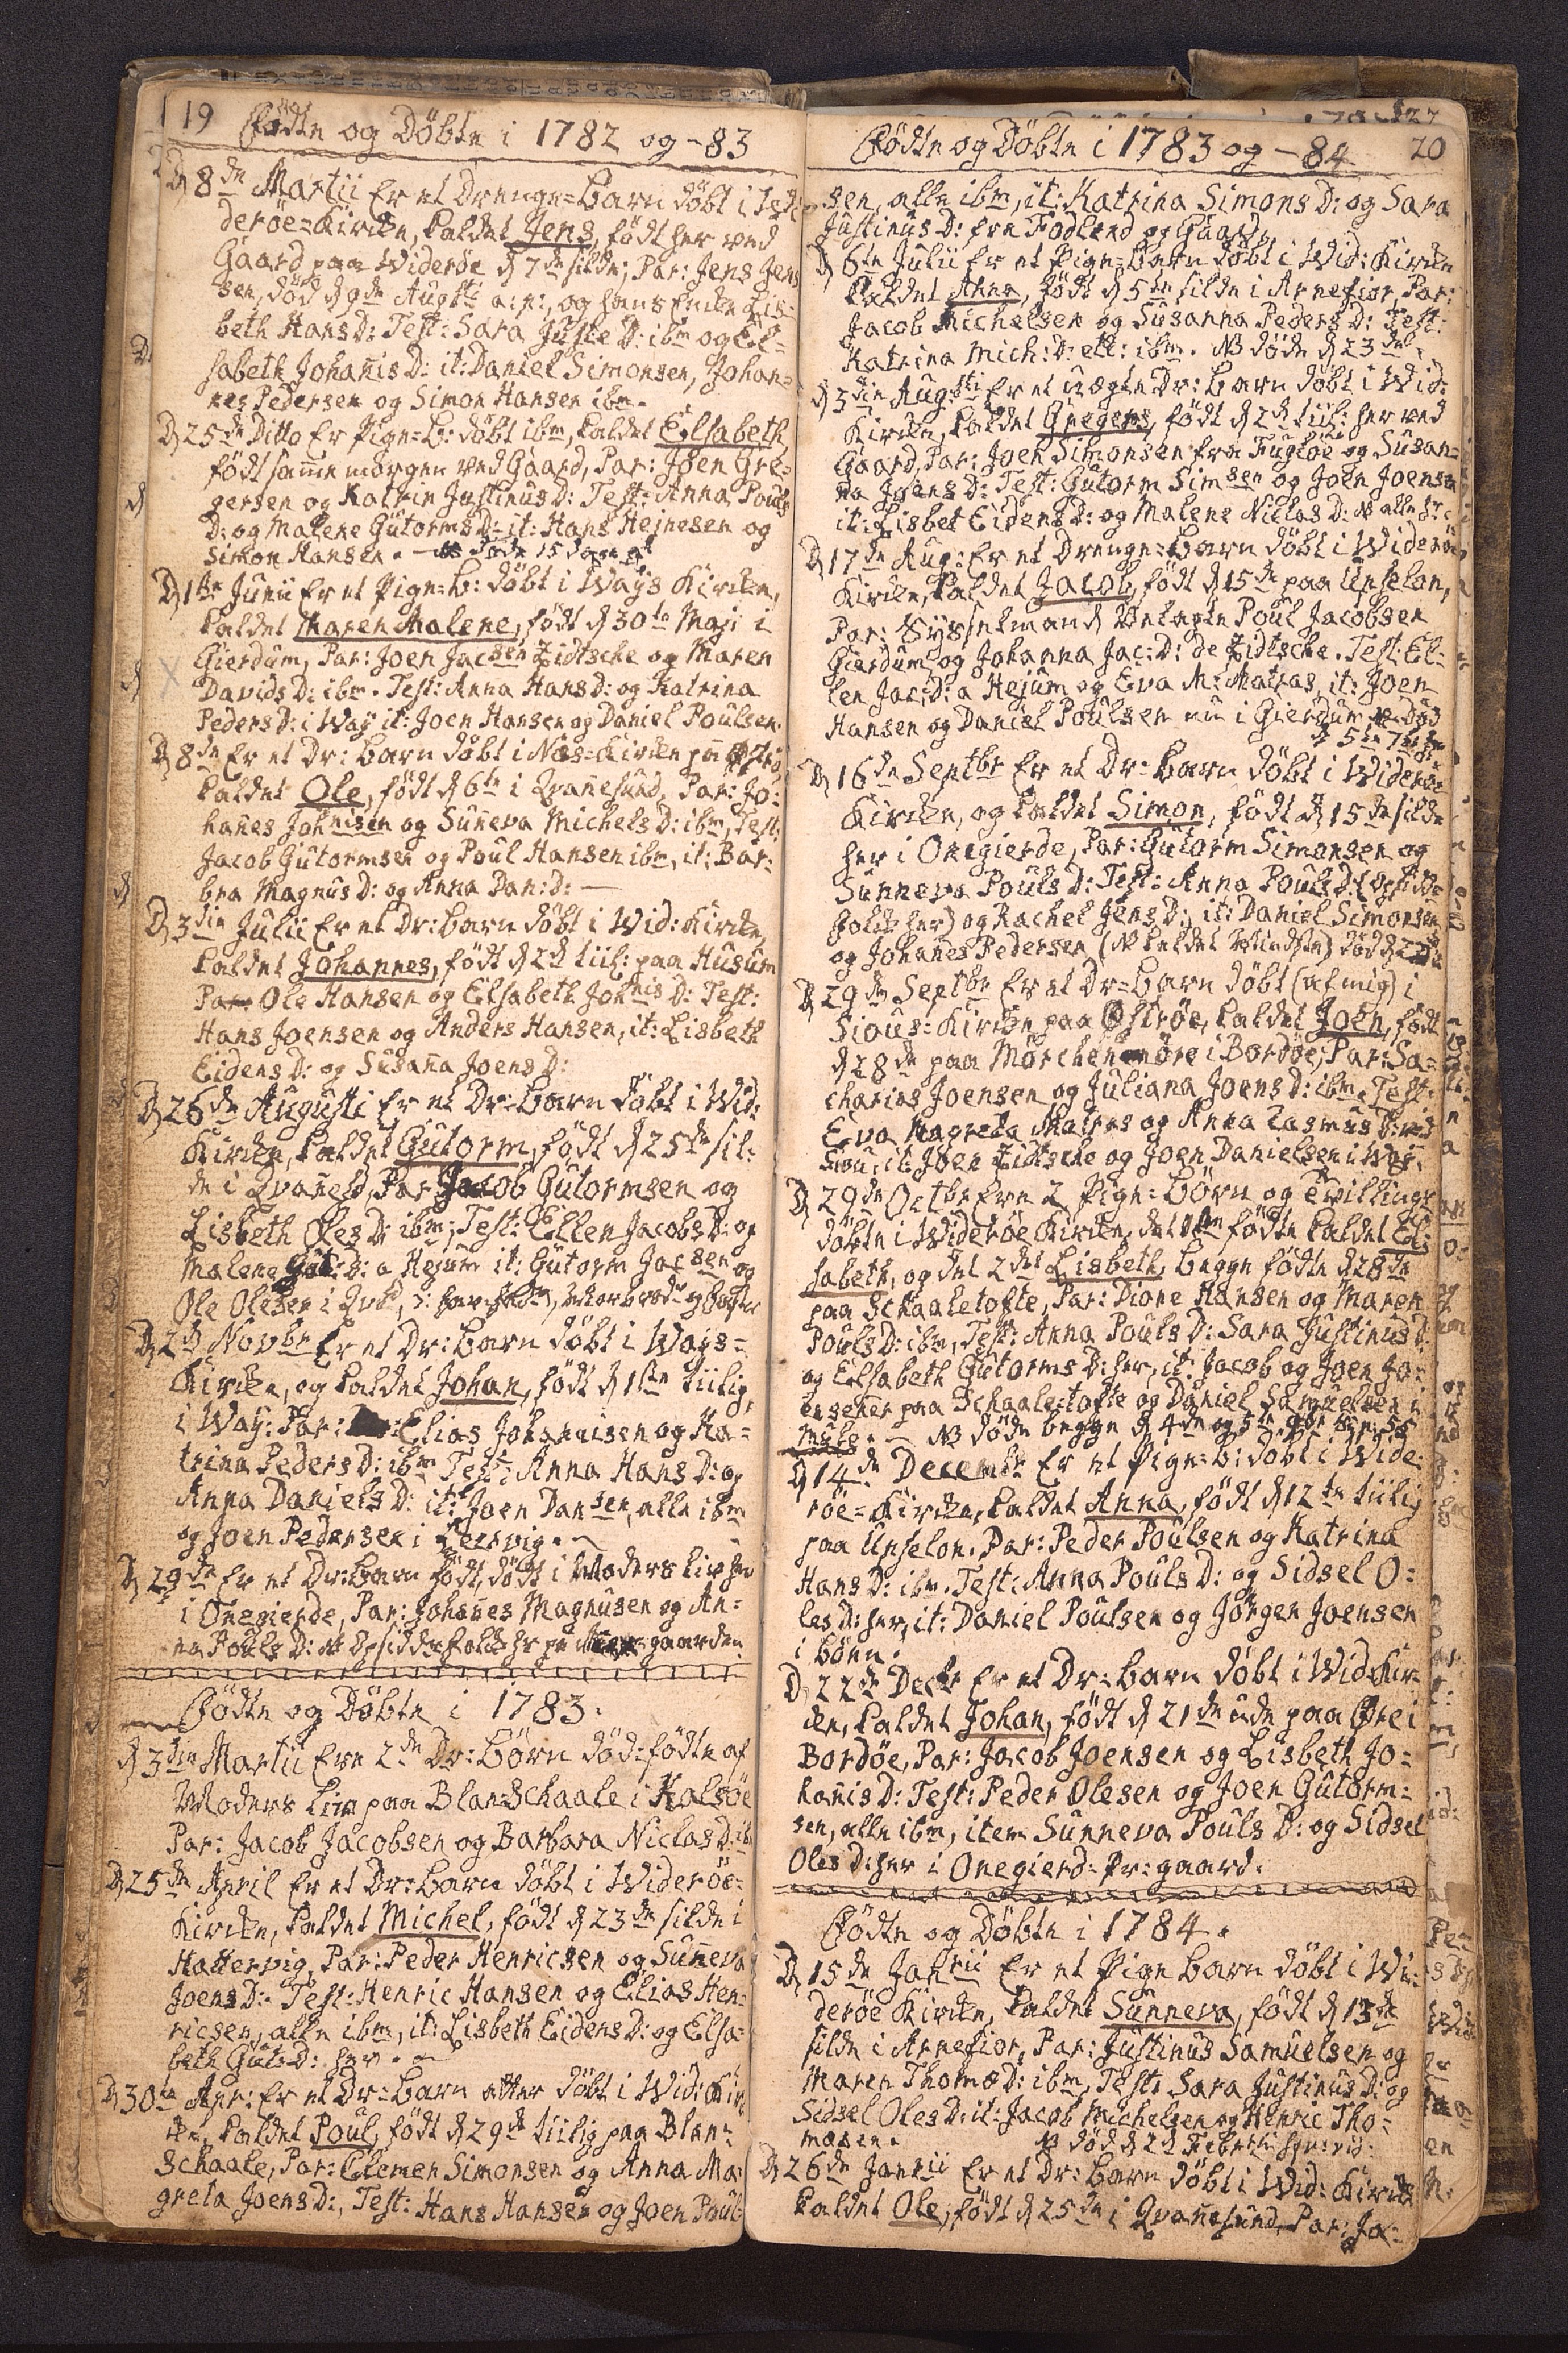 19 Födte og Döbte i 1782 og -83
D 8de Martii er et Drenge=Barn döbt i
deröe=Kirke, kaldet Jens, födt her ved
Gaard paa Wideröe d 7de silde; Par: Jens Jen
sen, död d 9de Augsti a: p:, og hans Enke Lis=
beth Hans D: Test: Sara Juste D: ibm og El=
sabeth Johanis D: it: Daniel Simonsen, Johan=
nes Pedersen og Simon Hansen ibm.
D 25de Ditto er Pige=B: döbt ibm, kaldet Elsabeth,
födt samme morgen ved Gaard, Par: Joen Gre=
gersen og Katrin Justinus D: Test: Anna Pouls
D: og Malene Gutorms D: it: Hans Hejnesen og
Simon Hansen. — NB döde 15 dage
D 1ste Junii er et Pige=B: döbt i Ways Kirke,
kaldet Maren Malene, födt d 30te Maji i
Gierdum, Par: Joen Jacsen Zidtsche og Maren
Davids D: ibm. Test: Anna Hans D: og Katrina
Peders D: i Way it: Joen Hansen og Daniel Poulsen.
D 8de er et Dr: Barn döbt i Nas=Kirke paa
kaldet Ole, födt d 6te i Qvanesund, Par: Jo=
hanes Johnisen og Suneva Michels D: ibm, Test:
Jacob Gutormsen og Poul Hansen ibm, it: Bar=
bra Magnus D: og Anna Dan: D: —
D 3die Julii er et Dr: Barn döbt i Wid: Kirke,
kaldet Johannes, födt d 2d tiil: paa Husum
Par: Ole Hansen og Elsabeth Johnis D: Test:
Hans Joensen og Anders Hansen, it: Lisbeth
Eidens D: og Susana Joens D:
D 26de Augusti er et Dr: Barn döbt i Wid:
Kirke, kaldet Gutorm, födt d 25de sil=
de i Qvaneld, Par Jacob Gutormsen og
Lisbeth Oles D: ibm; Test: Ellen Jacobs D: og
Malene Gut: D: a Hejum it: Gutorm Jacsen og
Ole Olesen i
D 2d Novbr er et Dr: Barn döbt i Ways=
Kirke, og kaldet Johan, födt d 1ste tiilig
i Way: Par: Elias Johanisen og Ka=
trina Peders D: ibm Test: Anna Hans D: og
Anna Daniels D: it: Joen Dansen, alle ibm
og Joen Pedersen i Leervig.
D 29de er et Dr: Barn födt, dödt i Moders Liv her
i Onegierde, Par: Johanes Magnusen og An=
na Pouls D: NB Opsidder folk her paa gaarden
Födte og Döbte i 1783.
D 3die Martii ere 2de Dr: Börn död=födte af
Moders Liv paa BlanSchaale i Kalsöe
Par: Jacob Jacobsen og Barbara Niclas D: ib
D 25de April er et Dr: Barn döbt i Wideröe=
Kirke, kaldet Michel, födt d 23de silde i
Hattervig, Par: Peder Henricsen og Suneva
Joens D: Test: Henric Hansen og Elias Hen=
ricsen, alle ibm, it: Lisbeth Eidens D: og Elsa=
beth Gut: D: her.
D 30te Apr: er et Dr: Barn atter döbt i Wid: Kir
ke, kaldet Poul, födt d 29de tiilig paa Blan=
Schaale, Par: Clemen Simonsen og Anna Ma=
greta Joens D:, Test: Hans Hansen og Joen Poul=
Födte og Döbte i 1783 og -84 20
sen, alle ibm, it: Katrina Simons D: og Sara
Justinus D: fra Fodlend og Gaard.
D 6te Julii er et Pige=Barn döbt i Wid: Kirke
kaldet Anna, födt d 5te silde i Arnefior, Par:
Jacob Michelsen og Susanna Peders D: Test:
Katrina Mich: D: ibm. NB döde d 23de
D 3die Augsti er et uægte Dr: Barn döbt i Wid:
Kirke, kaldet Gregers, födt d 2d tiil: her ved
Gaard, Par: Joen Simonsen fra Fugloe og Susan=
na Joens D: Test: Gutorm Simsen og Joen Joensen
it: Lisbet Eidens D: og Malene Niclas D: NB alle
D 17de Aug: er et Drenge=Barn döbt i Wideröe
Kirke, kaldet Jacob, födt d 15de paa Unselon,
Par: Sysselmand Poul Jacobsen
Gierdum og Johanna Jac: D: de Zidtsche. Test: El=
len Jac: D: a Hejum og Eva M: Matras, it: Joen
Hansen og Daniel Poulsen nu i Gierdum. NB Död
D 16de Septbr er et Dr: Barn döbt i Wideröe=
Kirke, og kaldet Simon, födt d 15de silde
her i Onegierde, Par: Gutorm Simonsen og
Sunneva Pouls D: Test: Anna Pouls D: (Opsidder
folk her) og Rachel Jens D:, it: Daniel Simonsen
og Johanes Pedersen
D 29de Septbr er et Dr=Barn döbt (af mig) i
Sious=Kirke paa Oströe, kaldet Joen, födt
d 28de paa Mörchenöre i Bordöe; Par: Sa=
charias Joensen og Juliana Joens D: ibm. Test:
Eva Magreta Matras og Anna Zasmus D: ved
Siou; it: Joen Zidtsche og Joen Danielsen i Way.
D 29de Octbr ere 2 Pige=Börn og Tvillinge
döbte i Wideröe Kirke, det 1ste födte kaldet El=
sabeth, og det 2det Lisbeth, begge födte d 28de
paa Schaaletofte, Par: Dione Hansen og Maren
Pouls D: ibm, Test: Anna Pouls D: Sara Justinus D:
og Elsabeth Gutorms D: her, it: Jacob og Joen Jo=
ensener paa Schaaletofte og Daniel Samuelsen i
Mule. — NB döde begge d 4de og 5te
D 14de Decembr er et Pige=B: döbt i Wide=
röe=Kirke, kaldet Anna, födt d 12te tiilig
paa Unselon. Par: Peder Poulsen og Katrina
Hans D: ibm. Test: Anna Pouls D: og Sidsel O=
les D: her, it: Daniel Poulsen og Jörgen Joensen
i Bönn.
D 22de Decbr er et Dr: Barn döbt i Wid: Kir=
ke, kaldet Johan, födt d 21de ude paa Öre i
Bordöe, Par: Jacob Joensen og Lisbeth Jo=
hanis D: Test: Peder Olesen og Joen Gutorm=
sen, alle ibm, item Sunneva Pouls D: og Sidsel
Oles D: her i Onegierd=Pr: gaard.
Födte og Döbte i 1784.
D 15de Janrii er et Pige Barn döbt i Wi=
deröe Kirke, kaldet Sunneva, födt d 13de
silde i Arnefior, Par: Justinus Samuelsen og
Maren Thomæ D: ibm, Test: Sara Justinus D: og
Sidsel Oles D: it: Jacob Michelsen og Henric Tho=
masen. NB död d 2d Febr
D 26de Janrii er et Dr: Barn döbt i Wid: Kirke
kaldet Ole, födt d 25de i Qvanesund, Par: Ja=